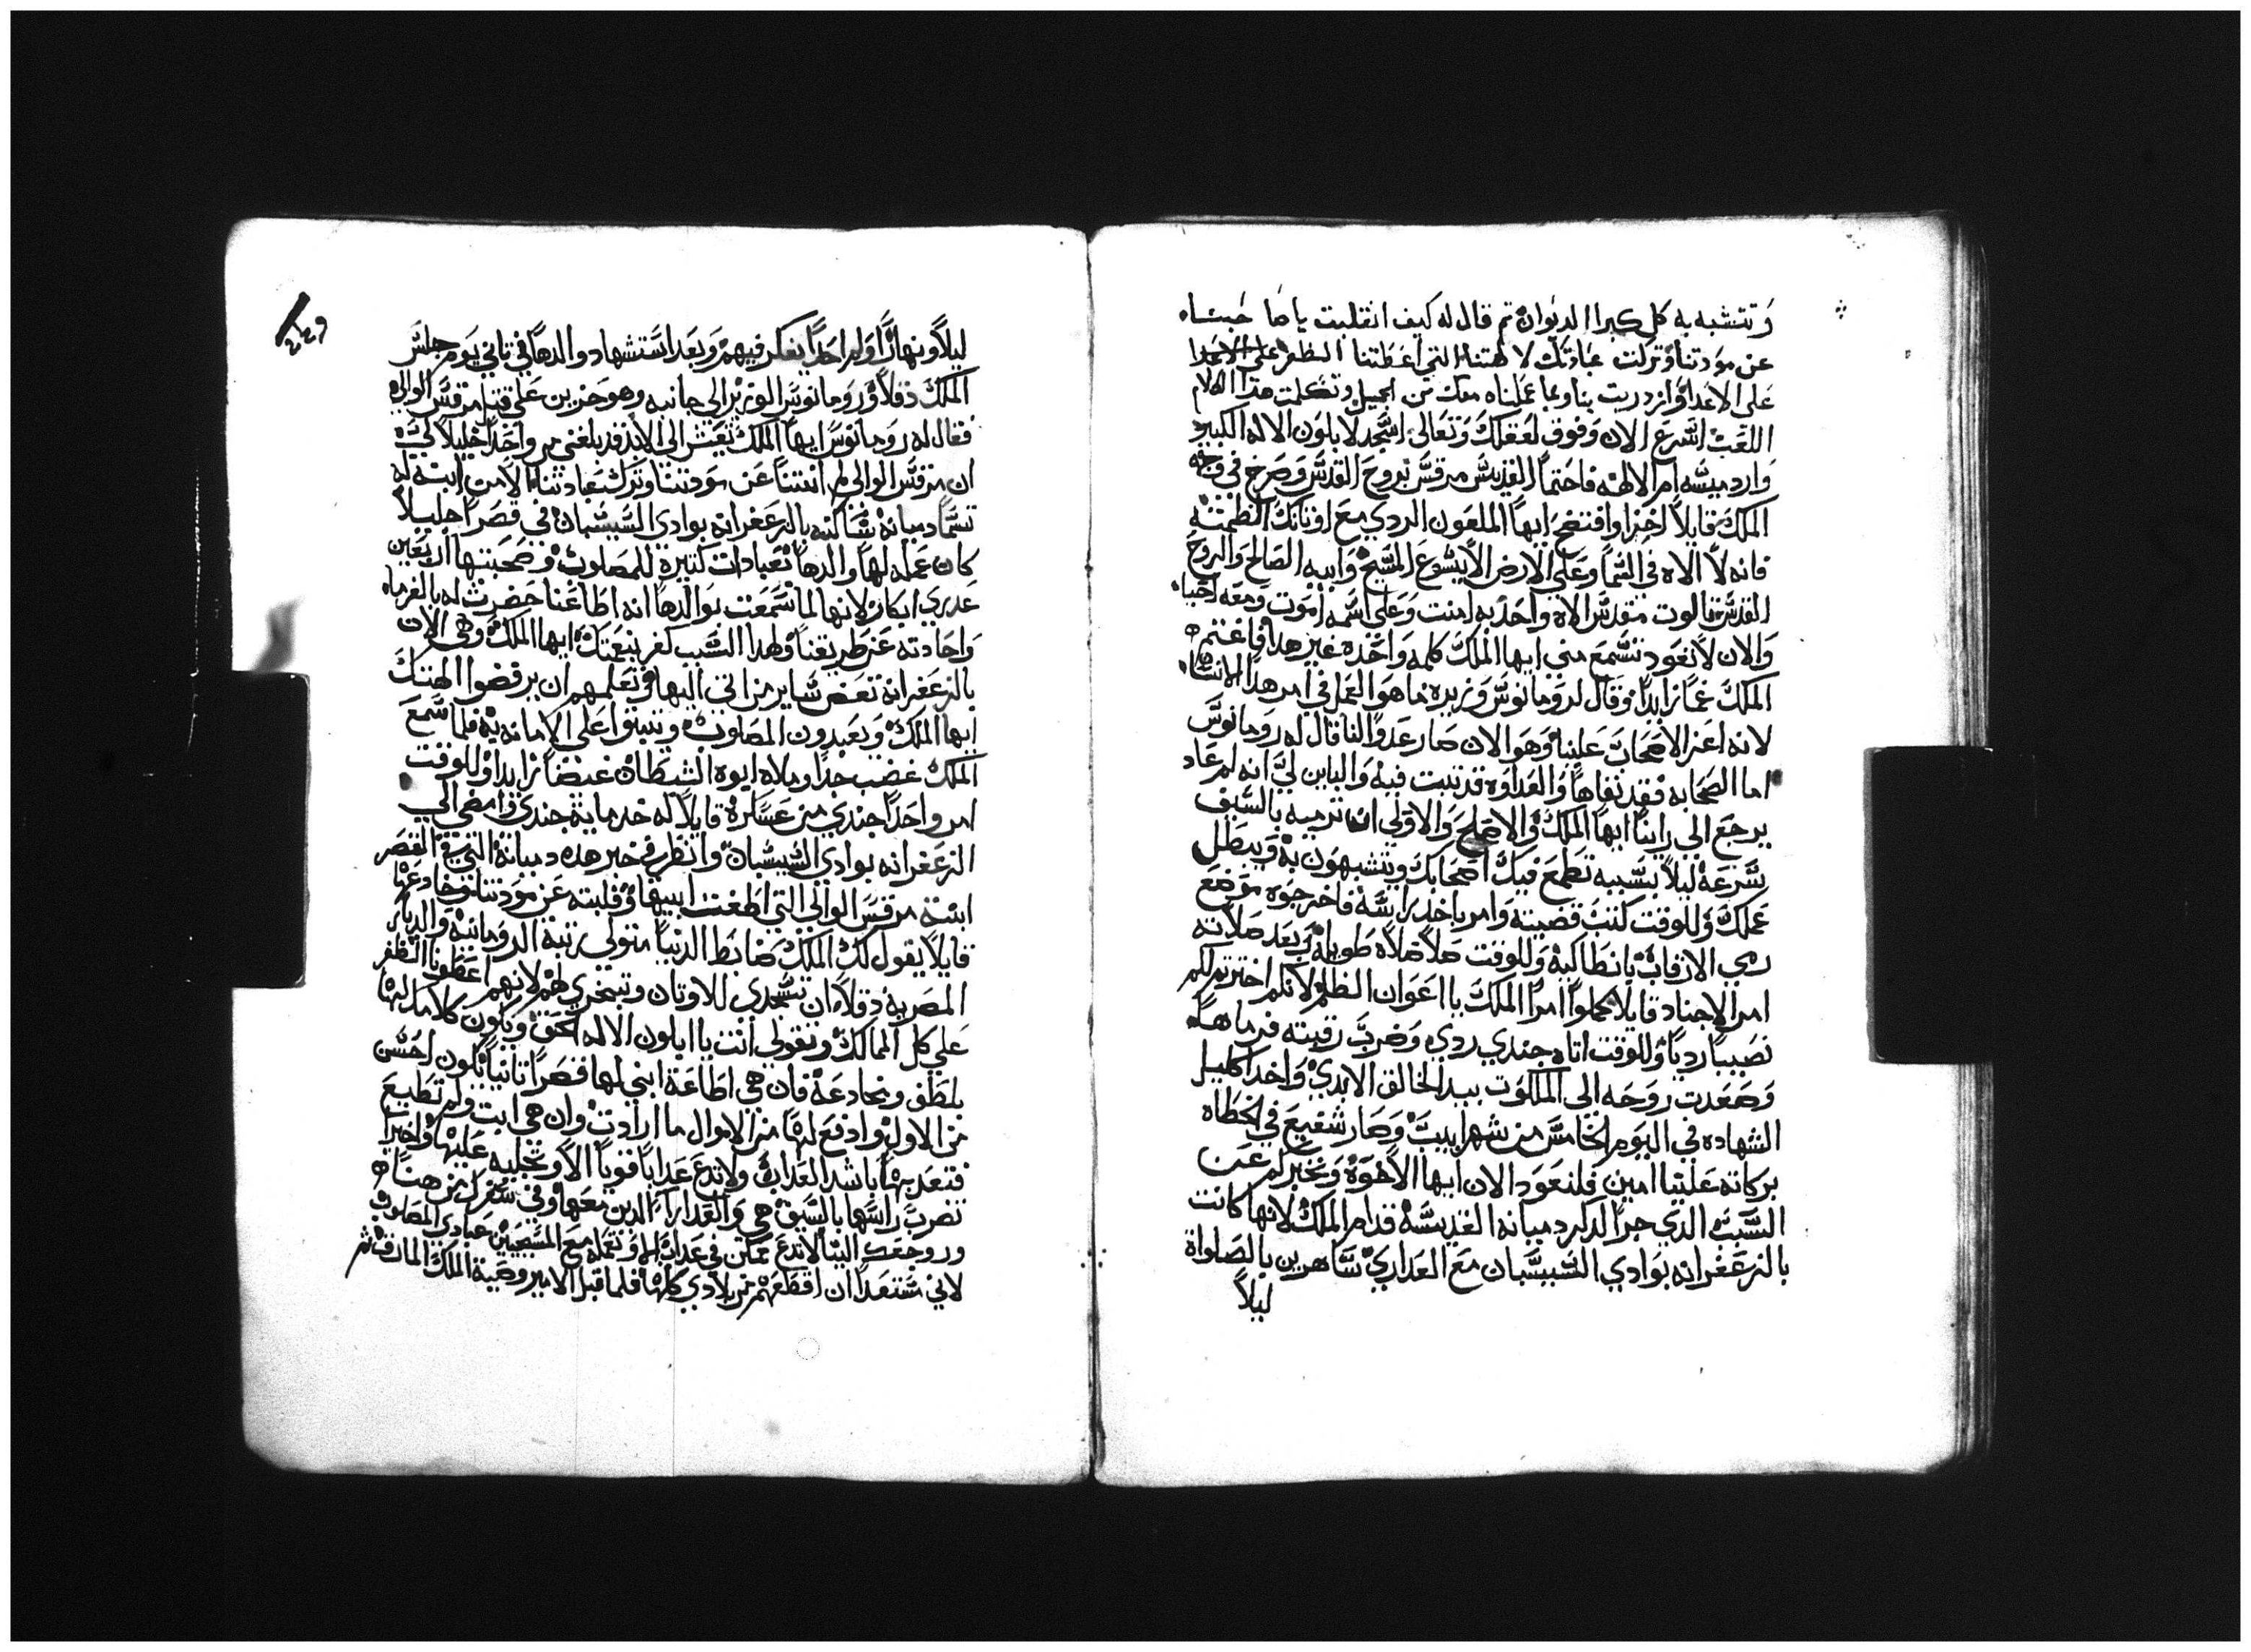 وتتشبه به كل كبرا الديوان تم قال له كيف انقلبت يا صاحبنا
عن مودتنا وتركت عبادتك لالهتنا التي اعطتنا الظفر علي الاعدا
علي الاعدا وازدريت بنا وبما عملناه معك من الجميل وتكلمت هدا الكلام
اللغب اسرع الان وفوق لعقلك وتعالي اسجد لابلون الاله الكبير
وارد ميسه ام الالهه فاحتما القديس مرقس بروح القدس وصرخ في وجه
الملك قايلاً اخزا وافتضح ايها الملعون الردي مع اوتانك الطمته
فانه لا الاه في السما وعلي الارض الا يشوع المسيح وابيه الصالح والروح
القدس تالوت مقدس الاه واحد به امنت وعلي اسمه اموت ومعه احيا
والان لا تعود تسمع مني ايها الملك كلمه واحده غير هدا فاغتم
الملك غماً زايداً وقال لرومانوس وزيره ما هو العمل في امر هدا الانسان
لانه اعز الاصحاب علينا وهو الان صار عدواً لنا قال له رومانوس
اما الصحابه فقد نفاها والعداوه قد تبتت فيه والباين لي انه لم عاد
يرجع الي راينا ايها الملك والاصلح والاولي ان ترميه بالسيف
بسرعه ليلا بسببه تطمع فيك اصحابك ويتشبهون به ويبطل
عملك وللوقت كتب قضيته وامر باخد راسه فاخرجوه موضع
رمي الارقاب بانطاكيه وللوقت صلا صلاه طويله وبعد صلاته
امر الاجناد قايلا كملوا امر الملك يا اعوان الظلم لانكم اخترتم لكم
نصيباً ردياً وللوقت اتاه جندي ردي وضرب رقبته فرماها
وصعدت روحه الي الملكوت بيد الخالق الابدي واخد اكليل
الشهاده في اليوم الخامس من شهر ابيب وصار شفيع في الخطاه
بركاته علينا امين فلنعود الان ايها الاخوه ونخبركم عن
السبب الدي جرا لدكر دميانه القديسه قدام الملك لانها كانت
بالزعفرانه بوادي السيسبان مع العداري ساهرين بالصلواة
ليلاً
249
ليلاً ونهاراً ولم احداً يفكر فيهم وبعد استشهاد والدها في تاني يوم جلس
الملك دقلاو ورومانوس الوزير الي جانبه وهو حزين علي قتل مرقس الوالي
فقال له رومانوس ايها الملك تعيش الي الابد قد بلغني من واحداً خليلاً ليه
ان مرقس الوالي لم انتنا عن مودتنا وترك عبادتنا الا من ابنة له
تسما دميانه ساكنه بالزعفرانه بوادي السيسبان في قصراً جليلاً
كان عمله لها والدها تعبادات كتيرة للمصلوب وصحبتها اربعين
عدري ابكار لانها لما سمعت بوالدها انه اطاعنا حضرت له بالفرماه
واحادته عن طريقنا ولهدا السبب كفر بنعمتك ايها الملك وهي الان
بالزعفرانه تعض ساير من اتي اليها وتعلمهم ان يرفضوا الهتك
ايها الملك ويعبدون المصلوب ويتبتوا علي الامانه به فلما سمع
الملك غضب جداً وملاه ابوه الشيطان غيضاً زايداً وللوقت
امر واحداً جندي من عساكره قايلاً له خد ماية جندي وامضي الي
الزعفرانه بوادي السيسبان وانظر في خبر هده دميانة التي في القصر
ابنة مرقس الوالي التي اطغت ابيها وقلبته عن مودتنا وخادعها
قايلاً يقول لك الملك ضابط الدنيا متولي رتبة الرومانيه والديار
المصريه دقلاو ان تسجدي للاوتان وتبخري لهم لانهم اعطونا الظفر
علي كل الممالك وتقولي انت يا ابلون الاله الحق ويكون كلامك لها
بلطف ومخادعة فان هي اطاعة ابني لها قصراً تانياً يكون احسن
من الاول وادفع لها من الاموال ما ارادت وان هي ابت ولم تطيع
فتعدبها باشد العداب ولا تدع عداباً قوياً الا وتجليه عليها واخيراً
تضرب راسها بالسيف هي والعداراا الدين معها وفي سفرك من هناه
وروجعك الينا لا تدع ممكن في عداب الا وتعمله مع المسيحيين عبادي المصلوب
لاني مستعداً ان اقطعهم من بلادي كلها فلما قبل الامير وصية الملك المارق ثم